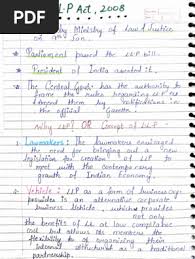 PDF
LLP Act, 2008
by Ministry of Law & Justice
Parliament passed the LLP bill.
President of India assented it.
The Central Govt. has the authority to
frame the rules regarding LLP and
amend them by notifications in the
official gazette.
Why LLP? OR Concept of LLP
Lawmakers: The lawmakers envisaged the
new legislation for creation of LLP to
meet with the contemporary
growth of Indian Economy.
Vehicle: LLP as a form of business org.
provides is an alternative corporate
business vehicle, which provides
not only
the benefits of LL at low compliance
cost but allows its members the
flexibility to organising their
internal structure as a traditional
partnership.